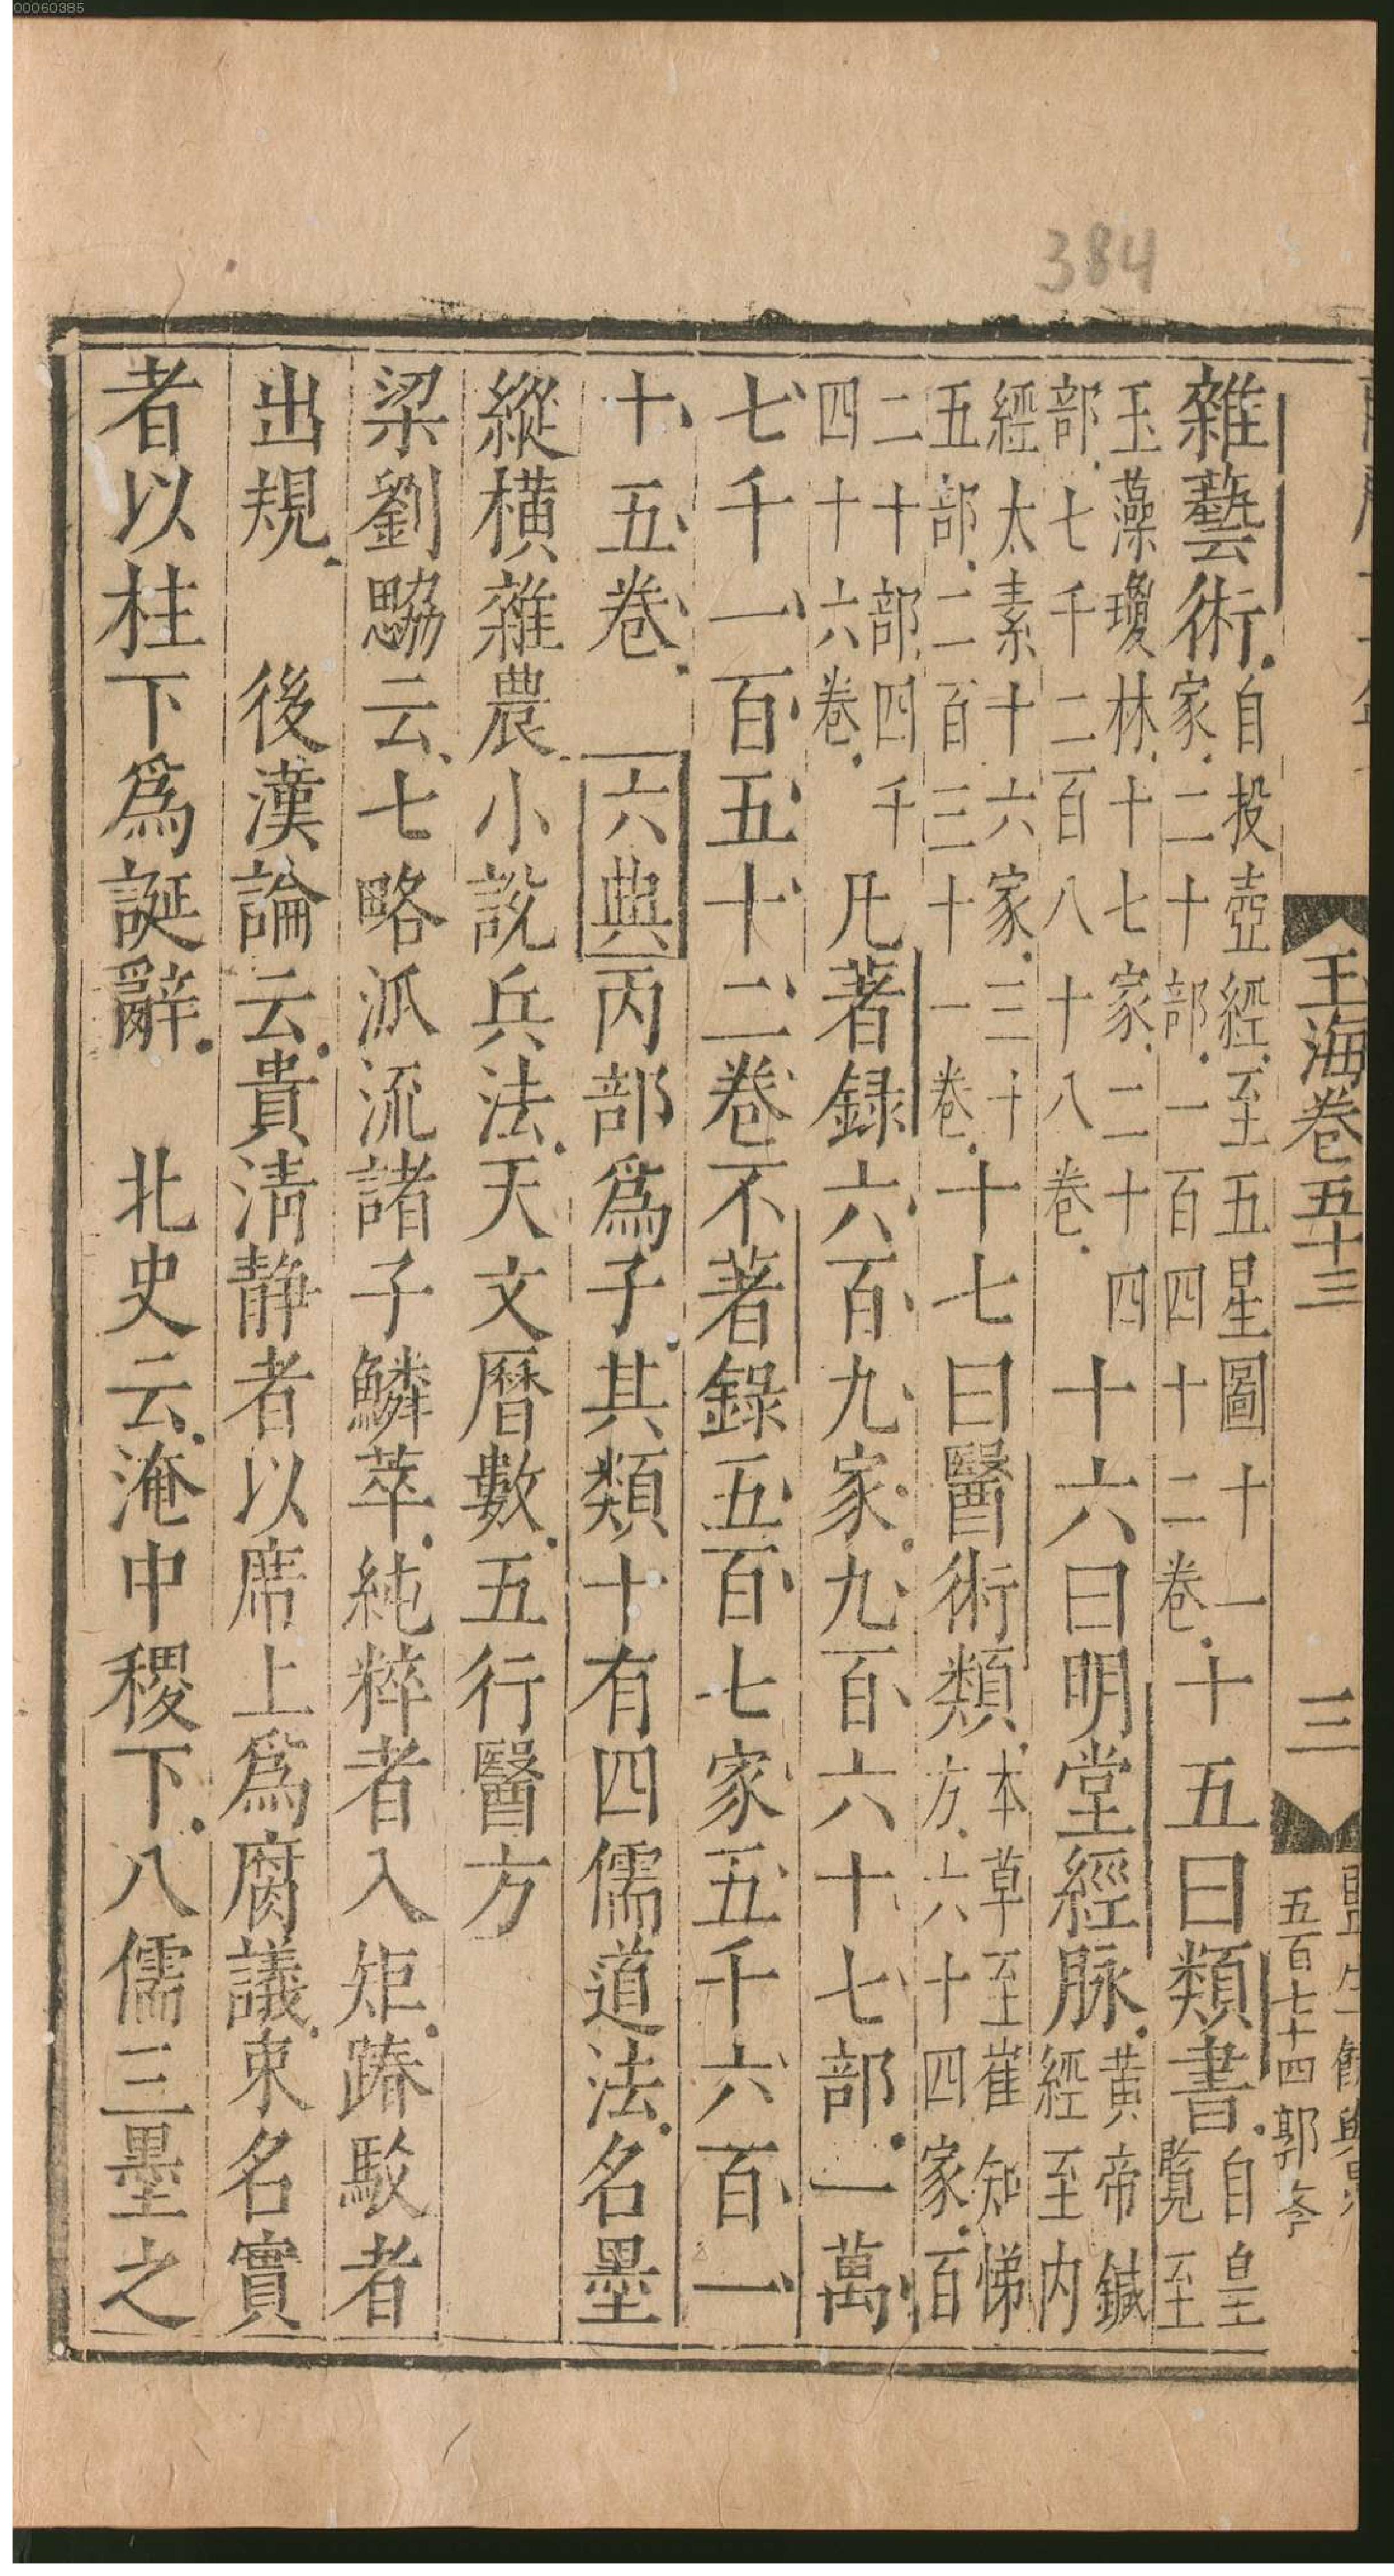 00060385
384
玉海卷五十三 三
五百七十四
雜藝術自投壺經至五星圖十一家二十部一百四十二卷十五曰類書自皇覽至
玉藻瓊林十七家二十四部七千二百八十八卷十六曰明堂經脉黃帝鍼經至内
經太素十六家三十五部二百三十一卷十七曰醫術類本草至崔知悌方六十四家百
二十部四千四十六卷凡著録六百九家九百六十七部一萬
七千一百五十二卷不著錄五百七家五千六百一
十五卷 六典丙部爲子其類十有四儒道法名墨
縱橫雜農小說兵法天文曆數五行醫方
梁劉勰云七略派流諸子鱗萃純粹者入矩踳駮者
出規 後漢論云貴清静者以席上爲腐議束名實
者以柱下爲誕辭 北史云淹中稷下八儒三墨之